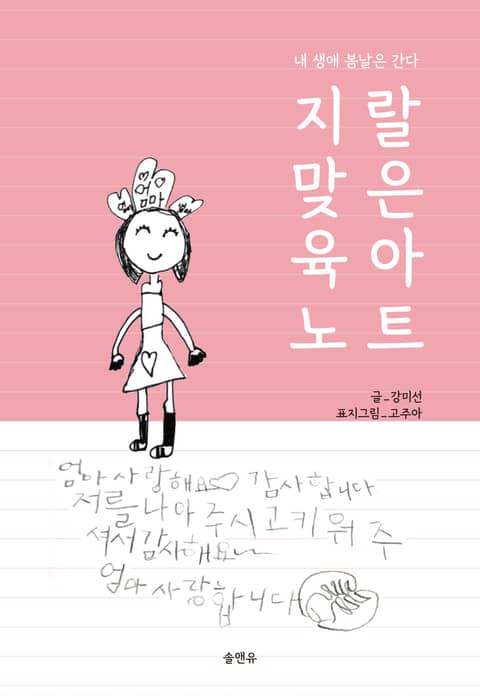 내 생애 봄날은 간다
지랄
맞은
육아
노트
글_강미선
표지그림_고주아
엄마
엄마 사랑해요♡ 감사합니다
저를 나아 주시고 키워 주
셔서 감사해요~
엄마 사랑합니다
솔앤유